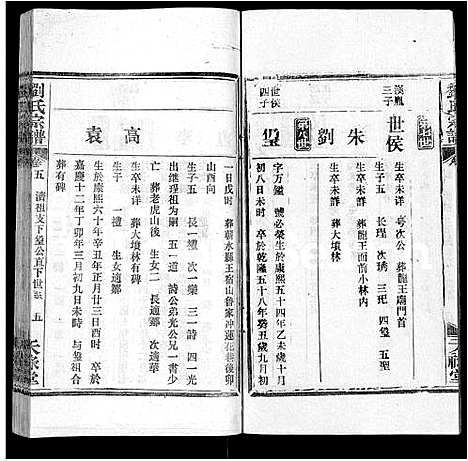 劉氏宗譜
漢胤
三子
世侯
生卒未詳 葬龍王廟門首
朱
生卒未詳 葬龍王而前小林內
生子五 長瑆 次琇 三玘 四璺 五聖
劉
生卒未詳 葬大墳林
世侯
四子
字萬鎰 號必榮生於康熙五十四年乙未歲十月
初八日未時 卒於乾隆五十八年癸丑歲九月初
一日戌時 葬蘄水縣王宿山魯家冲蓮花巷後卯
山酉向
生子六 長一禮 次一樂 三一詩 四一書
出繼瑆祖為嗣 五一道 詩公弟光公見一書少
亡 葬老虎山後 生女二 長適鄒 次適華
袁
生卒未詳 葬大墳林有碑
生子 一禮 生女適鄒
高
生於康熙六十年辛丑年正月廿三日時 卒於
嘉慶十二年丁卯年三月初九日未時 與璺祖合
葬有碑
劉氏宗譜
卷五 濟祖支下璺公直下世系 五
天祿堂
天祿堂